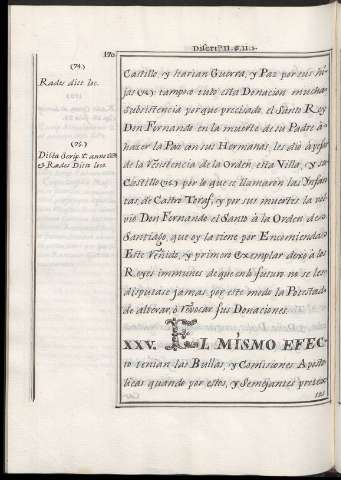 170
Disert.n II. §. II. 5.
(74.)
Rades dict loc.
(75.)
Dicta Scrip.
& Rades Dicta loco
Castillo, y harian Guerra, y Paz por sus hi-
jas (74) tampoco tubo esta Donacion mucha
subsistencia porque precisado el Santo Rey
Don Fernando en la muerte de su Padre à
hacer la Paz con sus Hermanas, les dió à pesar
de la resistencia de la Orden, esta Villa, y su
Castillo (75) por lo que se llamaron las Infan-
tas, de Castro Toraf, y por sus muertes la vol-
vio Don Fernando el Santo à la Orden de
Santiago, que oy la tiene por Encomienda
Este reñido, y primer Exemplar dexo à los
Reyes immunes de que en lo futuro no se les
disputase jamas por este modo la Potestad
de alterar, ò revocar sus Donaciones
XXV. EL MISMO EFEC-
to tenian las Bullas, y Comisiones Aposto-
licas quando por estos, y Semejantes pretex-
tos